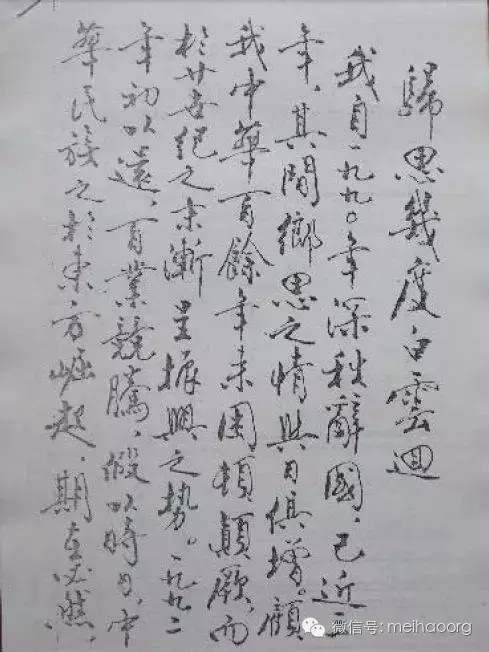 歸思幾度白雲迴
我自一九九〇年深秋辭國,已近
年,其間鄉思之情與日俱增。顧
我中華百餘年来困頓顛蹶,而
於廿世紀之末漸呈振興之勢。一九九二
年初以還,百業競騰,假以時日,中
華民族之於東方崛起,期在必然,
微信号: meihaoorg